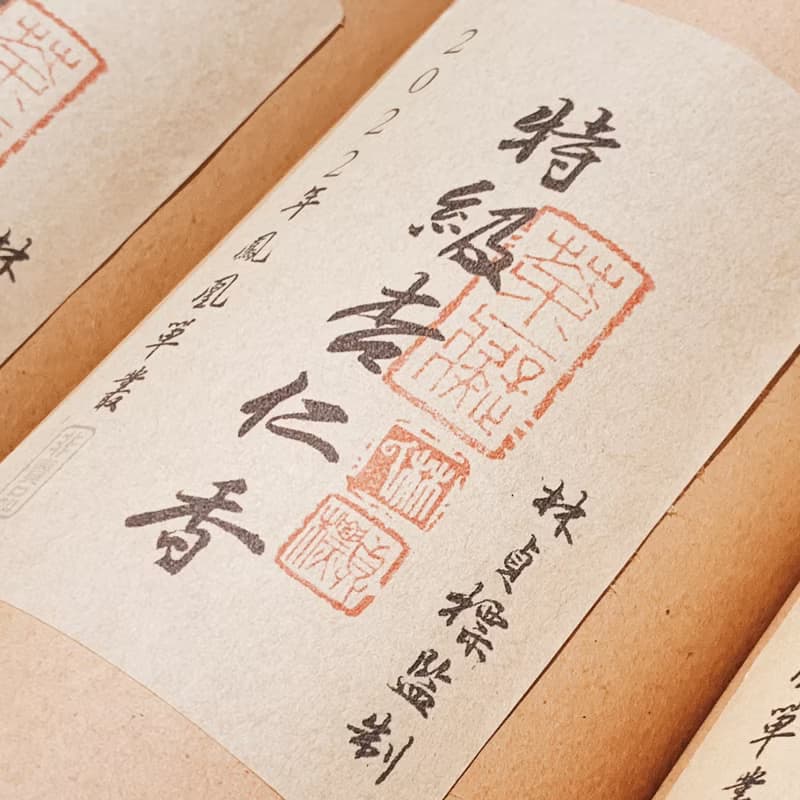 林
2022年鳳凰單叢
特級杏仁香
林貞標監制
單叢